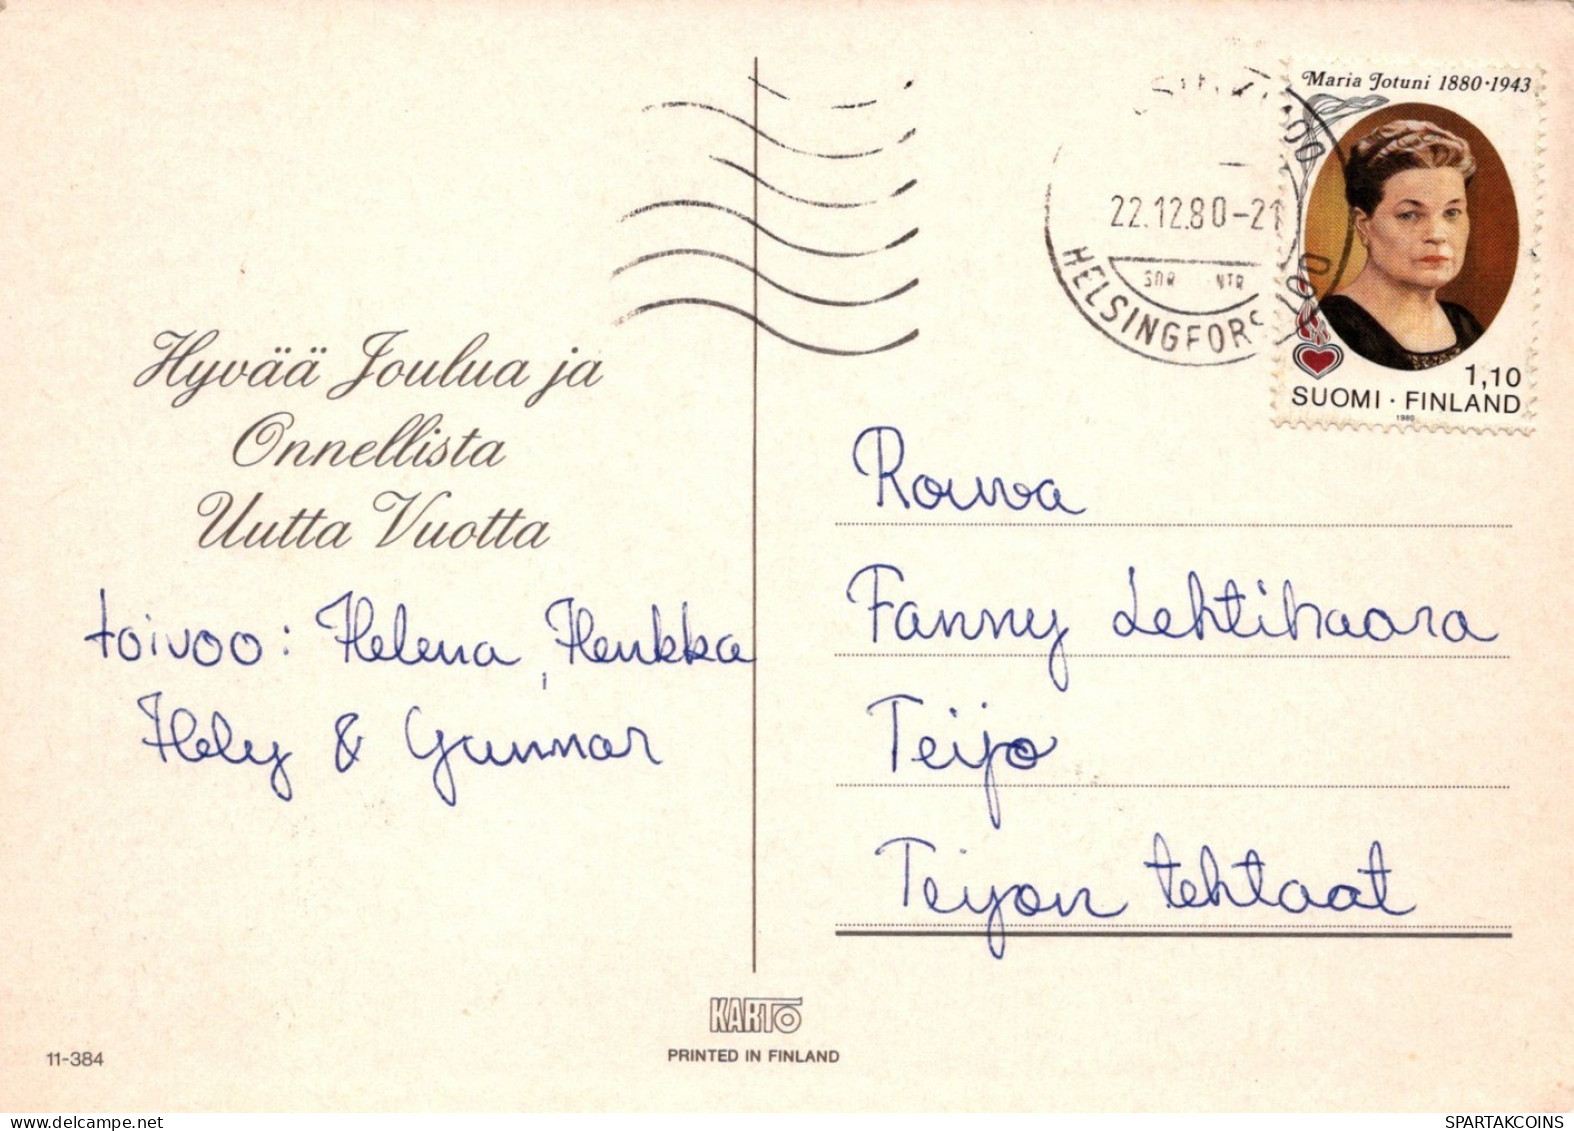 Maria Jotuni 1880·1943
22.12.80-21
HELSINGFORS
1,10
SUOMI·FINLAND
1980
Hyvää Joulua ja
Onnellista
Uutta Vuotta
toivoo: Helena, Henkka
Hely & Gunnar
Rouva
Fanny Lehtihaara
Teijo
Teijon tehtaat
KARTO
PRINTED IN FINLAND
11-384
SPARTAKCOINS